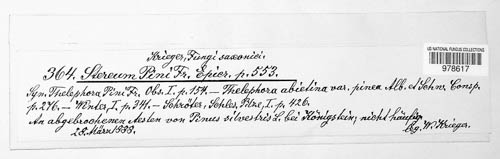 Krieger, Fungi saxonici.
364. Stereum Pini Fr. Epicr. p. 553.
Syn. Thelephora Pini Fr. Obs. I, p. 154. — Thelephora abietina var. pinea Alb. et Schw. Consp.
p. 276. — Winter, I, p. 341. — Schröter, Schles. Pilze, I, p. 426.
An abgebrochenen Aesten von Pinus silvestris L. bei Königstein, nicht häufig.
28. März 1888.
Lg. W. Krieger.
US NATIONAL FUNGUS COLLECTIONS
978617